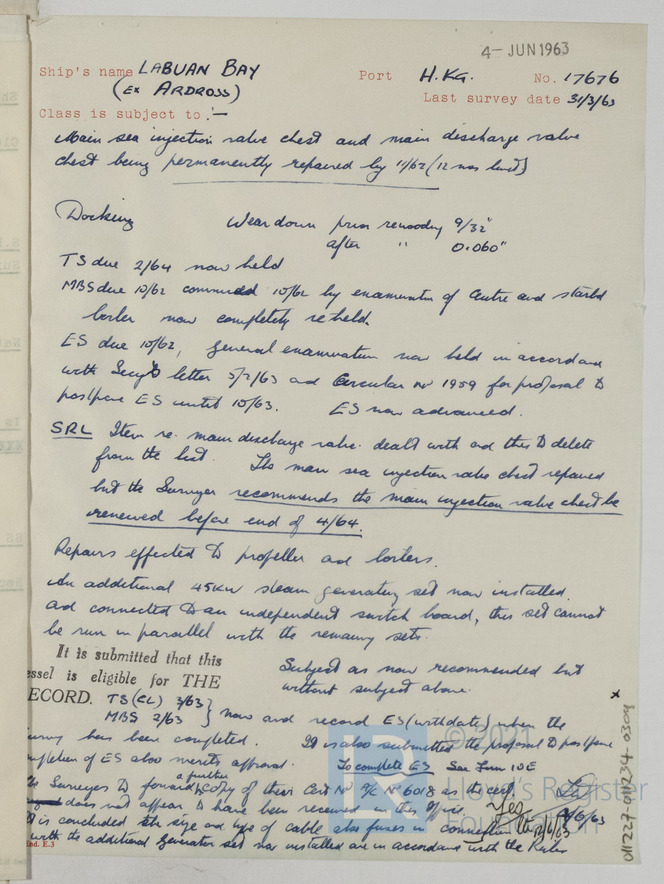 4- JUN 1963
Ship's name LABUAN BAY Port H.KG. No. 17676
(EX ARDROSS) Last survey date 31/3/63
Class is subject to :-
Main sea injection valve chest and main discharge valve
chest being permanently repaired by 11/62 (12 mos limit)
Docking Wear down prior rewooding 9/32"
after " 0.060"
TS due 2/64 now held
MBS due 10/62 commenced 10/62 by examination of Centre and starbd
boiler now completely re held.
ES due 10/62, General examination now held in accordance
with Secy's letter 5/2/63 and Circular No 1959 for proposal to
postpone ES until 10/63. ES now advanced.
SRL Item re. main discharge valve dealt with and this to delete
from the list. The main sea injection valve chest repaired
but the Surveyor recommends the main injection valve chest be
renewed before end of 4/64.
Repairs effected to propeller and boilers.
An additional 45KW steam generating set now installed
and connected to an independent switch board, this set cannot
be run in parallel with the remaining sets.
It is submitted that this
essel is eligible for THE
ECORD.
Subject as now recommended but
without subject above.
TS(CL) 3/63
MBS 2/63 } now and record ES (with date) when the
survey has been completed. It is also submitted the proposal to postpone
completion of ES also merits approval.
To complete ES See Form 10E
The Surveyors to forward a further copy of their Cert No 6018 as the
does not appear to have been received in this office
Yes
It is concluded the size and type of cable also fuses in connection
with the additional generator set now installed are in accordance with the Rules
12/6/63
nd. E.3
© 2021
Lloyd's Register
Foundation
011227-011234-0304